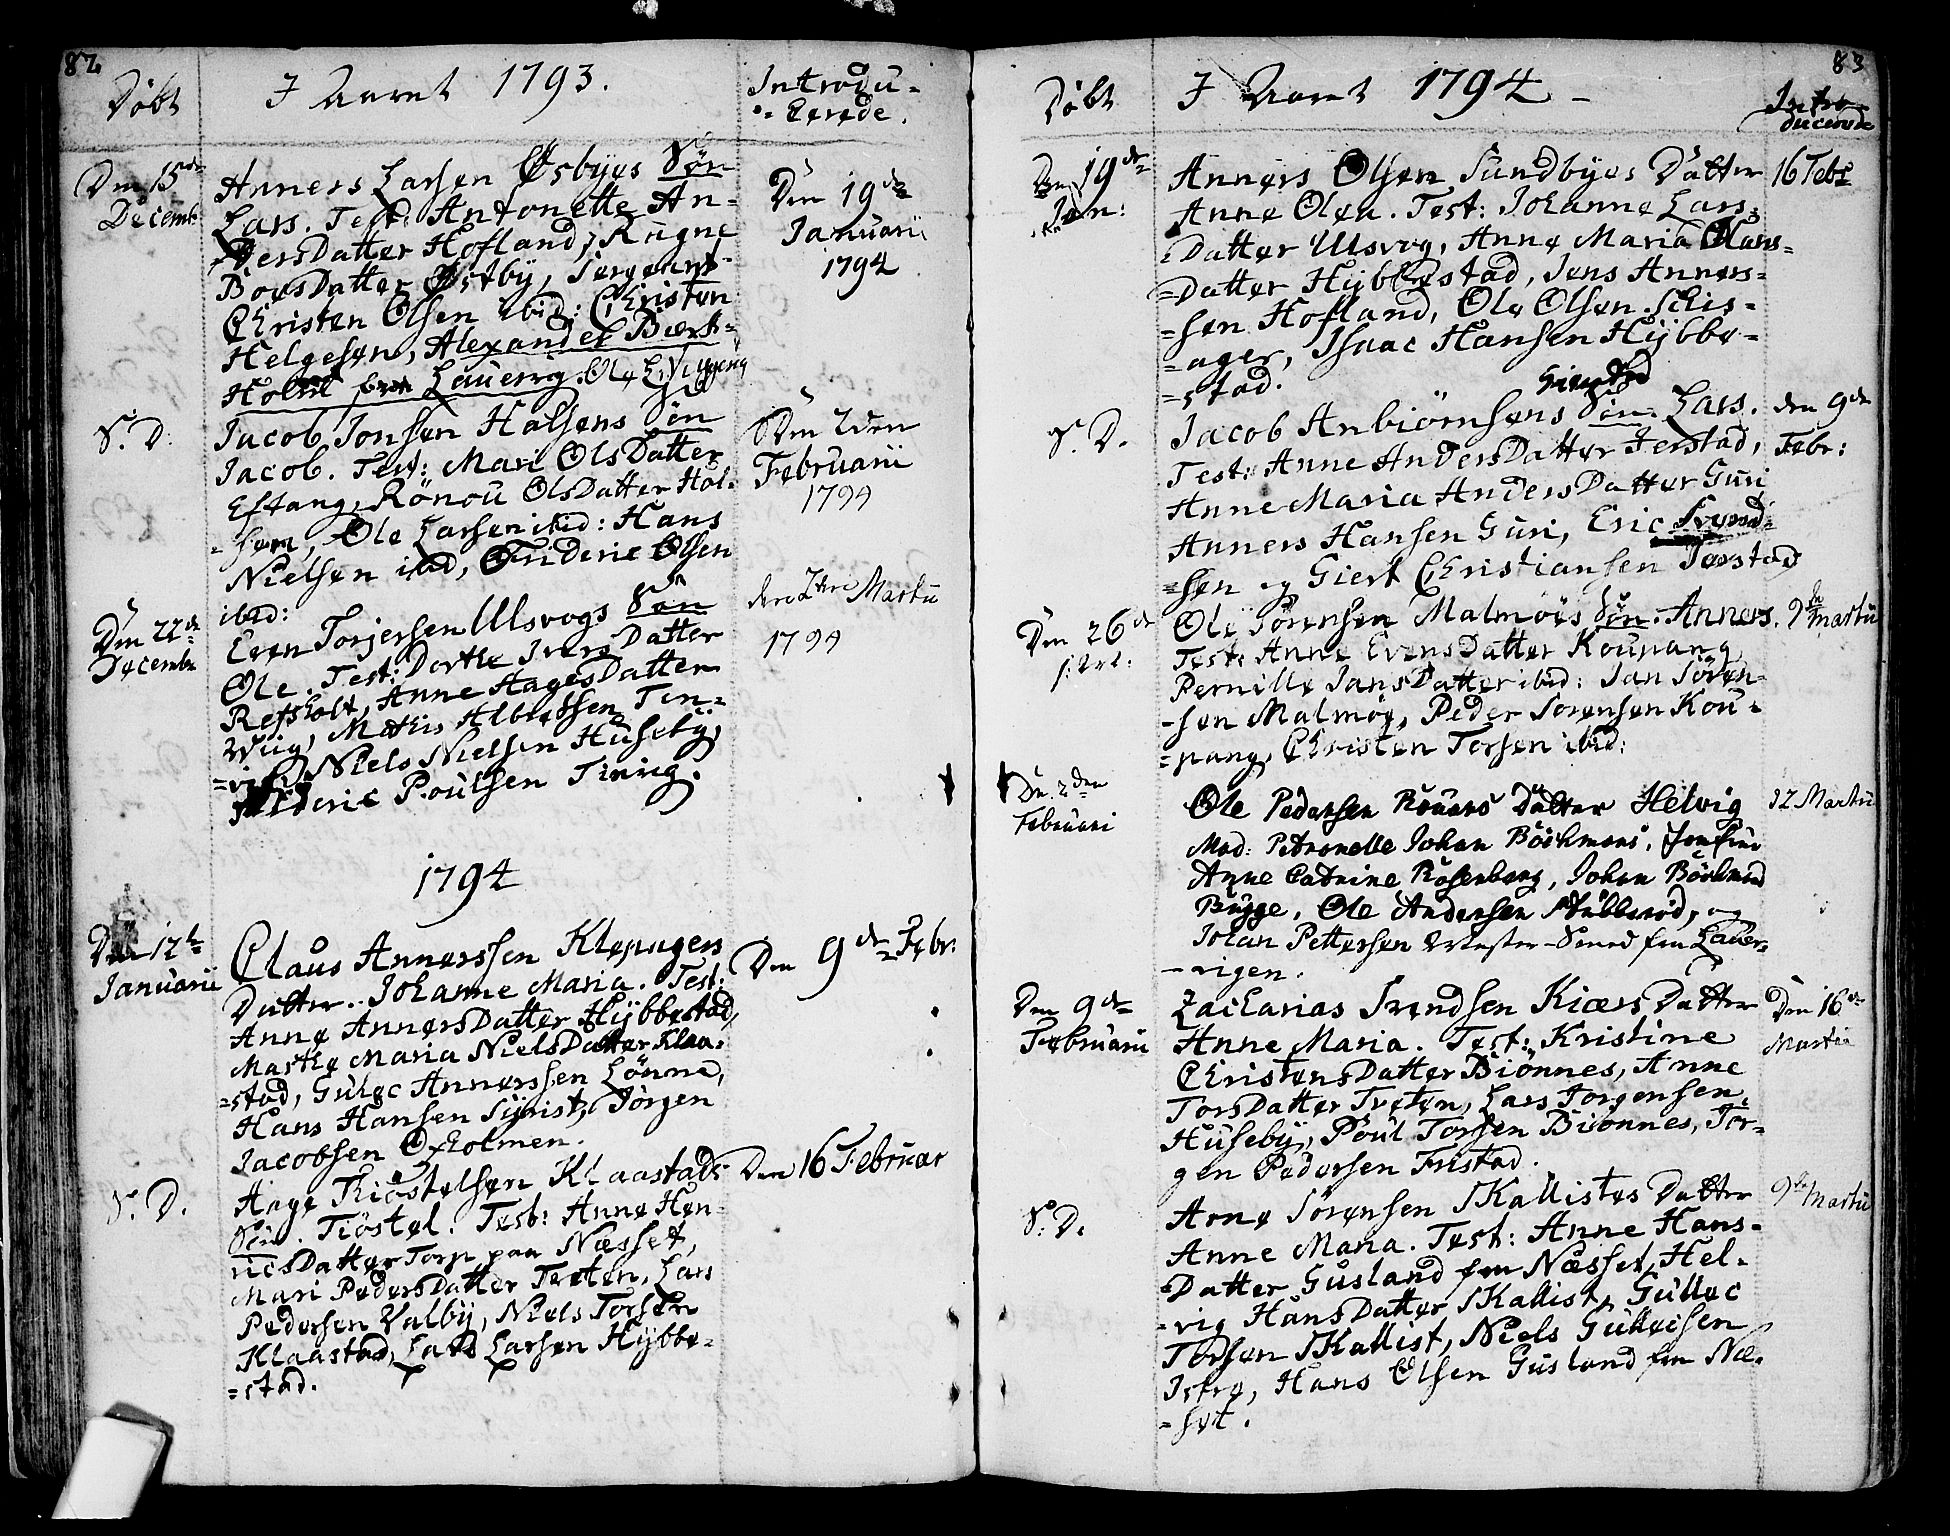 82
Döbt
I Aaret 1793.
Introdu-
cerede.
Den 15de
Decemb:
Anners Larsen Østbyes Søn
Lars. Test: Antonette An-
dersDatter Hofland, Rugne
BoesDatter Østby, Sergeant
Christen Olsen ibid: Christen
Helgesen, Alexander Bært-
Holm fra Lauervig. Ole
Den 19de
Januarii
1794
S. D.
Jacob Jonsen Halsens Søn
Jacob. Test: Mari OlsDatter
Eftang, Rönou OlsDatter Hal-
-sen, Ole Larsen ibid: Hans
Nielsen ibid, Frideric Olsen
ibid:
Den 2den
Februarii
1794
Den 22de
Decemb:
Even Torjersen Ulsvogs Søn
Ole. Test: Dorthe IversDatter
Refsholt, Anne AagesDatter
Wiig, Mathis Albretsen Tin-
-vig, Niels Nielsen Huseby,
Frideric Poulsen Tinvig.
den 2den Martii
1794
1794
Den 12te
Januarii
Claus Annerssen Klepagers
Datter. Johanne Maria. Test:
Anne AnnersDatter Hybbestad,
Marthe Maria NielsDatter Klaa-
-stad, Gulec Annerssen Lönne,
Hans Hansen Syrist, Jörgen
Jacobsen Oxholmen.
Den 9de Febr:
S. D.
Aage Kiöstelsen Klaastads
Søn. Tiöstel. Test: Anne Hen-
ricsDatter Torp paa Næsset,
Mari PedersDatter Treten, Lars
Pedersen Valby, Niels Torsen
Klaastad, Lars Larsen Hybbe-
-stad.
Den 16 Februar
83
Döbt
I Aaret 1794
Intro-
ducerede
Den 19de
Jan:
Anners Olsen Sundbyes Datter
Anne Olea. Test: Johanne Lars-
-Datter Ulsvog, Anne Maria Hans-
-Datter Hybbestad, Jens Anners-
-sen Hofland, Ole Olsen Schis-
-ager, Isaac Hansen Hybbe-
-stad.
16 Febr
S. D.
Jacob Anbiörnsens Søn Lars.
Test: Anne AndersDatter Ierstad,
Anne Maria AndersDatter Guri
Anners Hansen Guri, Eric Svend-
-sen og Giert Christiansen Tanstad
den 9de
Febr:
Den 26de
Ole Sörensen Malmöis Søn. Anners.
Test: Anne EvensDatter Koupang
Pernille JansDatter ibid: Jan Sören-
-sen Malmöe, Peder Sörensen Kou-
-pang, Christen Torsen ibid:
9de Martii
Den 2den
Februari
Ole Pedersen Rouers Datter Helvig
Mad: Petronelle Johan Böckmans, Jomfrue
Anne Catrine Rosenberg, Johan Böckman
Bugge, Ole Andersen Stubberöd, og
Johan Pettersen Mester-Smed fra Lauer-
-vigen.
12 Martii
Den 9de
Februarii
Zacharias Svendsen Kiærs Datter
Anne Maria. Test: Kristine
ChristensDatter Biönnes, Anne
TorsDatter Treten, Lars Jorgensen
Huseby, Poul Torsen Biönnes, Jör-
gen Pedersen Fristad.
Den 16de
Martii
S. D.
Arne Sörensen Skallistes Datter
Anne Maria. Test: Anne Hans-
-Datter Gusland fra Næsset, Hel-
-vig HansDatter Skallist, Gullec
Torsen Skallist, Niels Gullecsen
Istre, Hans Olsen Gusland fra Næ-
-set.
9de Martii